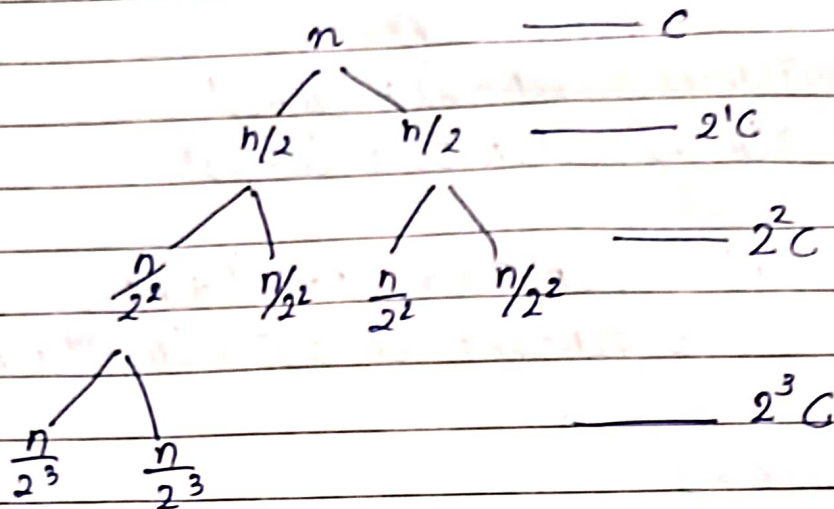 n C
n/2 n/2 2¹C
n/2² n/2² n/2² n/2² 2²C
n/2³ n/2³ 2³C